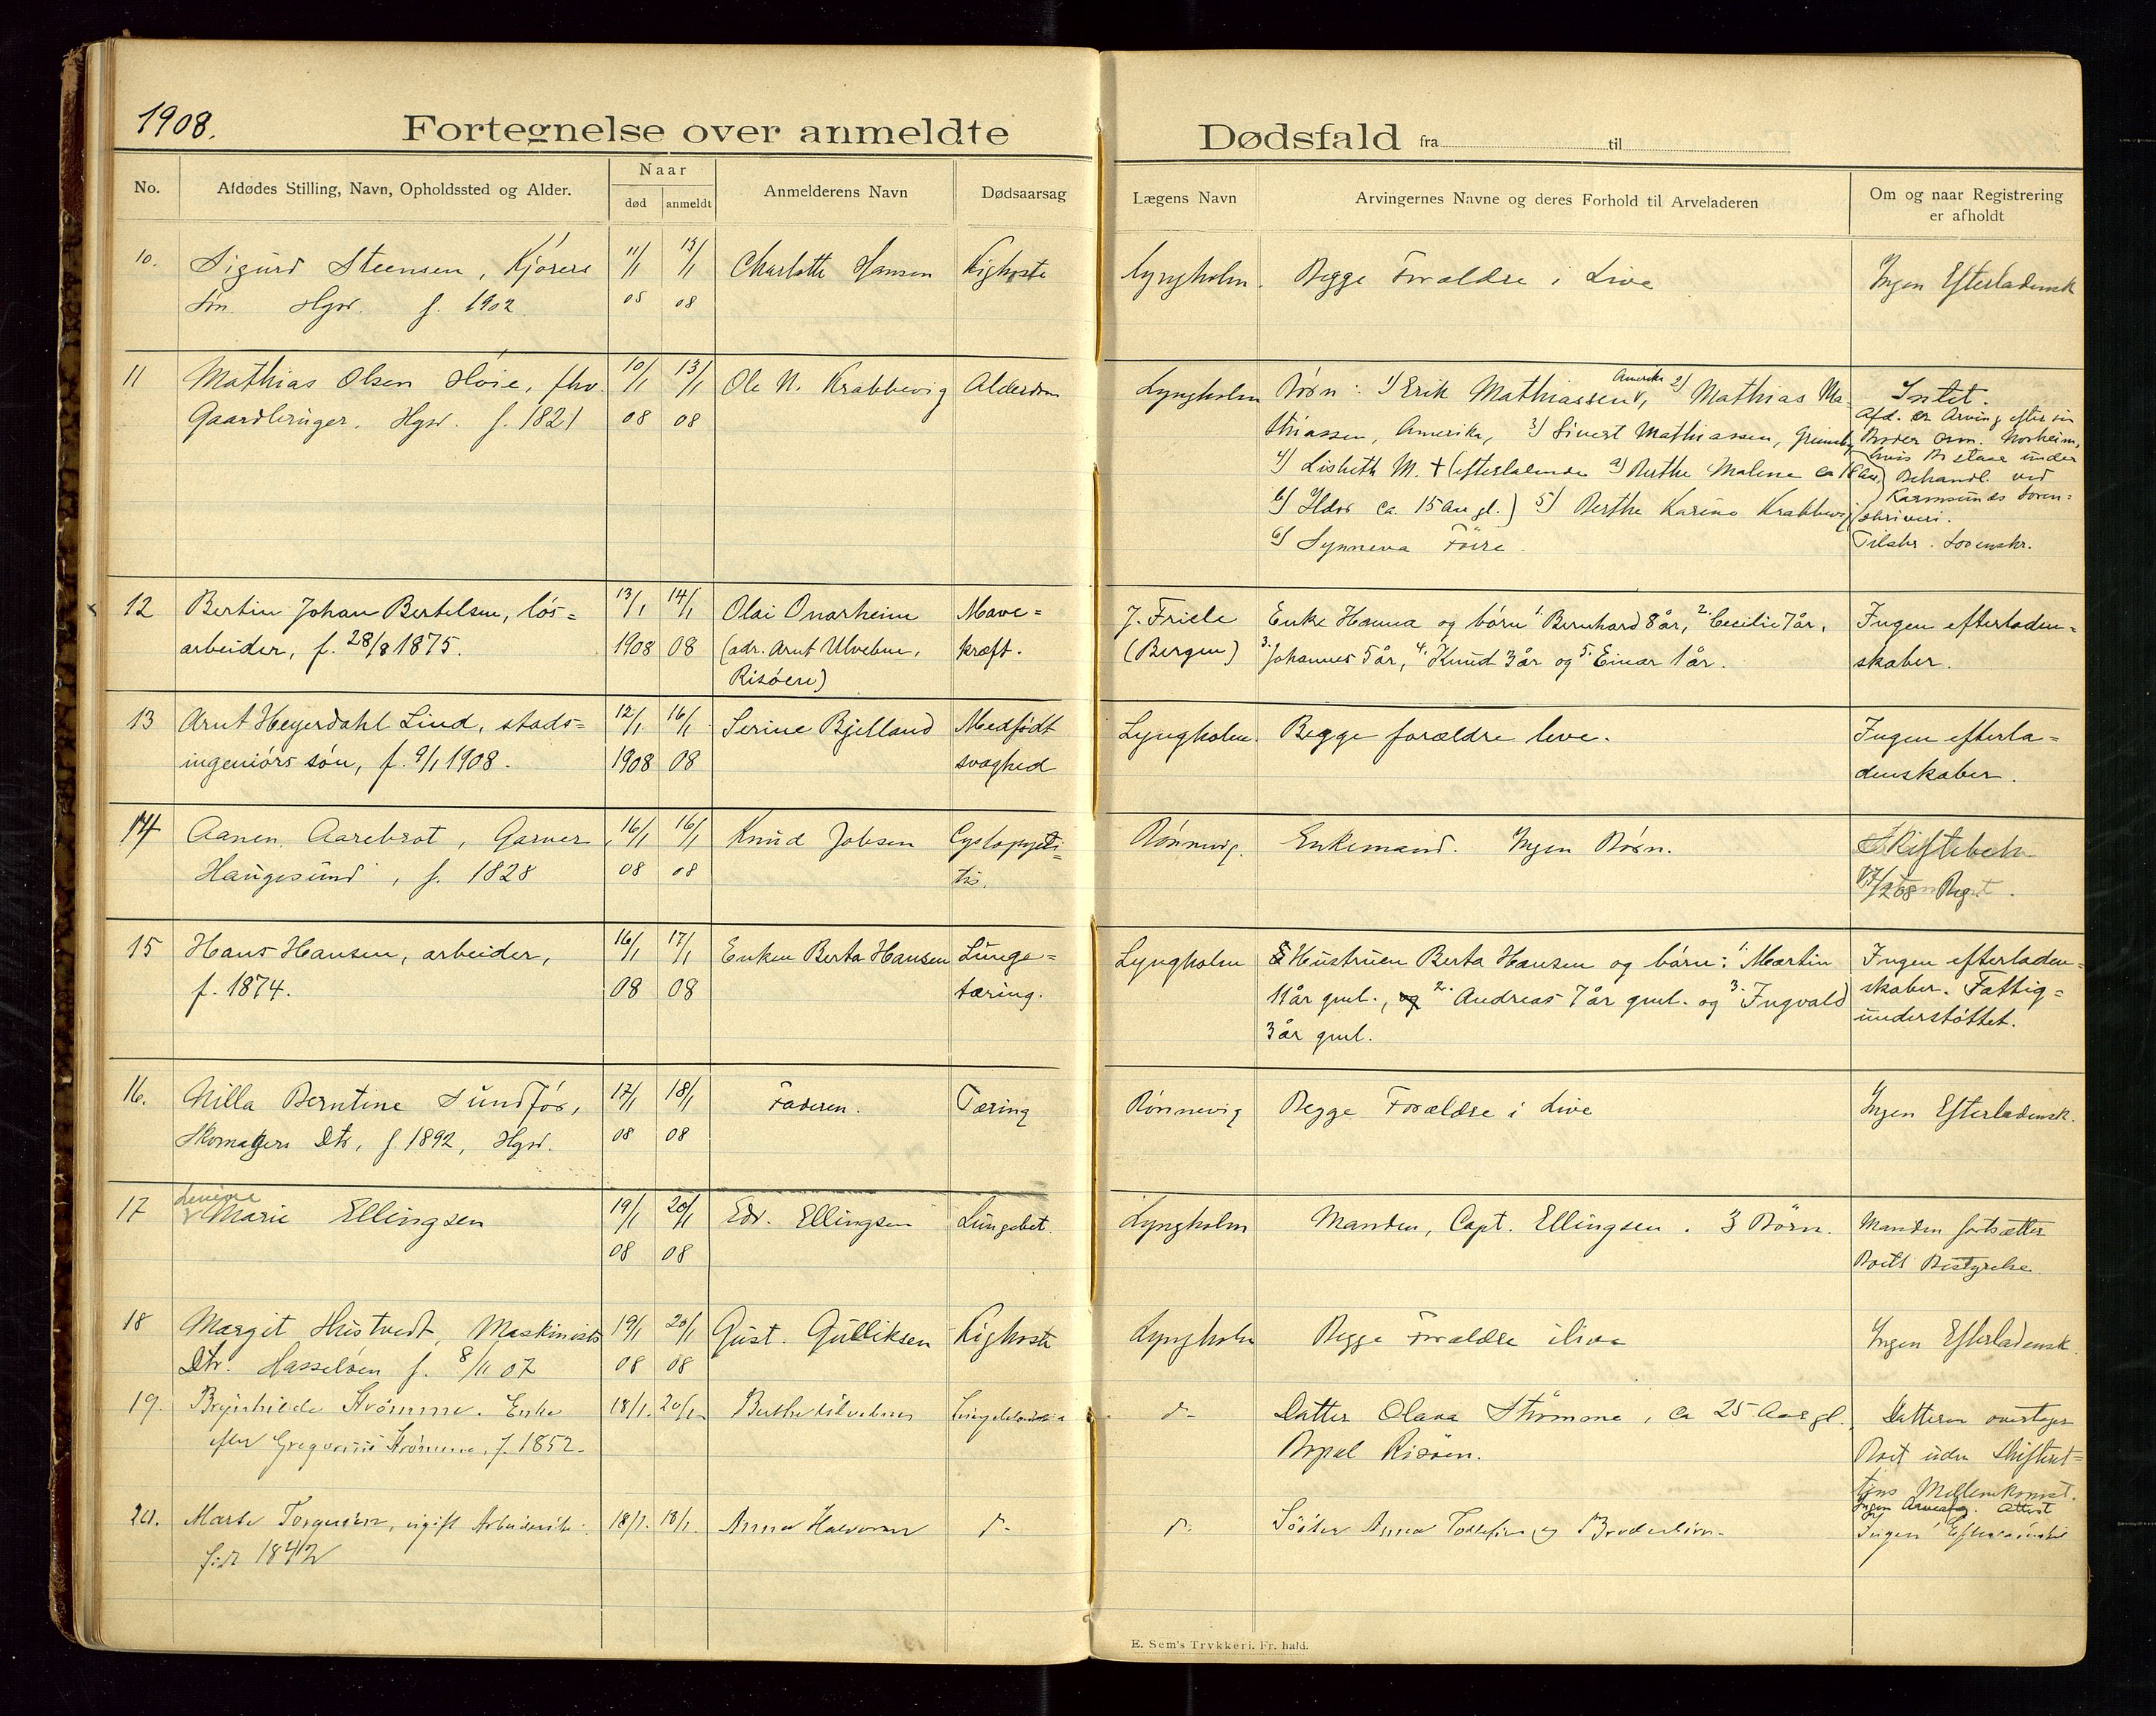 1908.
Fortegnelse over anmeldte Dødsfald fra til
No.
Afdødes Stilling, Navn, Opholdssted og Alder.
Naar
død
anmeldt
Anmelderens Navn
Dødsaarsag
Lægens Navn
Arvingernes Navne og deres Forhold til Arveladeren
Om og naar Registrering
er afholdt
10. Sigurd Steensen, Kjørers 11/1 13/1 Charlotte Hansen Kighoste Lyngholm. Begge Forældre i Live Ingen Efterladensk
Søn Hgsd. f. 1902 08 08
11 Mathias Olsen Høie, fhv. 10/1 13/1 Ole N. Krabbevig Alderdom Lyngholm Børn: 1) Erik Mathiassen, Amerika 2) Mathias Ma- Intet.
Gaardbruger. Hgsd. f. 1821 08 08 thiassen, Amerika, 3) Sivert Mathiassen, Grimsby Afd. er Arving efter sin
Broder Norheim,
4) Lisbeth M. + (efterladende a) Berthe Malene ca 18 Aar hvis Bo staar under
Behandl. ved
b) Ildor ca. 15 Aar gl.) 5) Berthe Karine Krabbevig Karmsunds Soren-
skriveri.
6) Synneva Føire. Tilskr. Sorenskr.
12 Bertin Johan Bertelsen, løs= 13/1 14/1 Olai Onarheim Mave= J. Friele Enke Hanna og børn 1. Bernhard 8 år, 2. Cecilie 7 år, Ingen efterladen=
arbeider, f. 28/8 1875. 1908 08 (adr. Arnt Ulvebne, kræft. (Bergen) 3. Johannes 5 år, 4. Knud 3 år og 5. Einar 1 år. skaber.
Risøen)
13 Arnt Heyerdahl Lind, stads= 12/1 16/1 Serine Bjelland Medfødt Lyngholm. Begge forældre leve. Ingen efterla=
ingeniørs søn, f. 9/1 1908. 1908 08 svaghed denskaber.
14 Aanen Aarebrot, Garver, 16/1 16/1 Knud Jobsen Cystopyeli- Rønnevig. Enkemand. Ingen Børn. Skiftebeh
Haugesund, f. 1828 08 08 tis. 17/2 08 Reg.
15 Hans Hansen, arbeider, 16/1 17/1 Enken Berta Hansen Lunge= Lyngholm Hustruen Berta Hansen og børn: 1. Martin Ingen efterladen=
f. 1874. 08 08 tæring. 11 år gml., og 2. Andreas 7 år gml. og 3. Ingvald skaber. Fattig=
3 år gml. understøttet.
16. Nilla Berntine Sundfør, 17/1 18/1 Faderen. Tæring Rønnevig Begge Forældre i Live Ingen Efterladensk.
Skomagers Dtr, f. 1892, Hgsd. 08 08
17 Marie Ellingsen 19/1 20/1 Edv. Ellingsen Lungebet. Lyngholm Manden, Capt. Ellingsen. 3 Børn. Manden fortsætter
08 08 Boets Bestyrelse
18 Margit Hustvedt, Maskinists 19/1 20/1 Gust. Gulliksen Kighoste Lyngholm Begge Forældre ilive Ingen Efterladensk.
Dtr. Hasseløen f. 8/11 07 08 08
19. Brynhilde Strømme. Enke 18/1. 20/1. Berthe d- Datter Olava Strømme, ca 25 Aar gl. Datteren overtager
efter Gregorius Strømme, f. 1852. Bopæl Risøen. Boet uden Skifteret=
tens Mellemkomst.
Ingen Attest
20. Marte Torgersen, ugift 18/1. 18/1. Anna Halvorsen d- d- Søster Anna og Broderbørn. Ingen
født 1842
E. Sem's Trykkeri. Fr.hald.